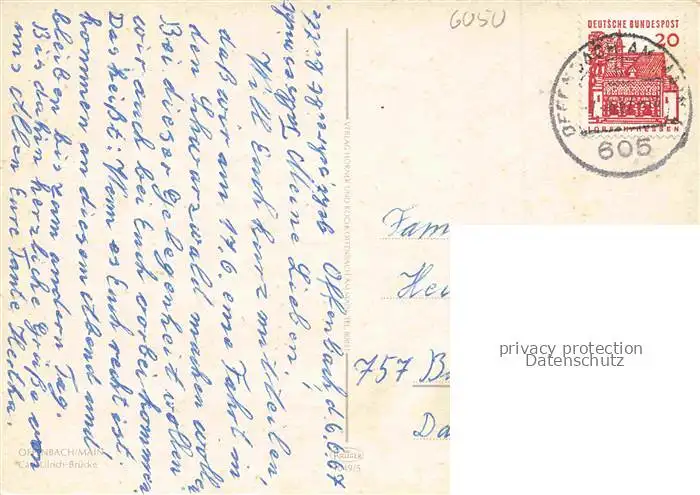 6050
DEUTSCHE BUNDESPOST
20
LORSCH/HESSEN
605
Offenbach, d. 6.6.67
Meine Lieben,
Will Euch kurz mitteilen,
daß wir am 17.6. eine Fahrt in
den Schwarzwald machen wollen
Bei dieser Gelegenheit wollen
wir auch bei Euch vorbeikommen
Das heißt: Wenn es Euch recht ist.
Kommen so diesem Abend und
bleiben bis zum andern Tag.
Bis dahin herzliche Grüße von
uns Allen Eure Tante Hertha.
Fam
Hei
757 B
Da
privacy protection
Datenschutz
VERLAG HÖRNER UND KOCH OFFENBACH AM MAIN
KRÜGER
OFFENBACH/MAIN
Carl-Ulrich-Brücke